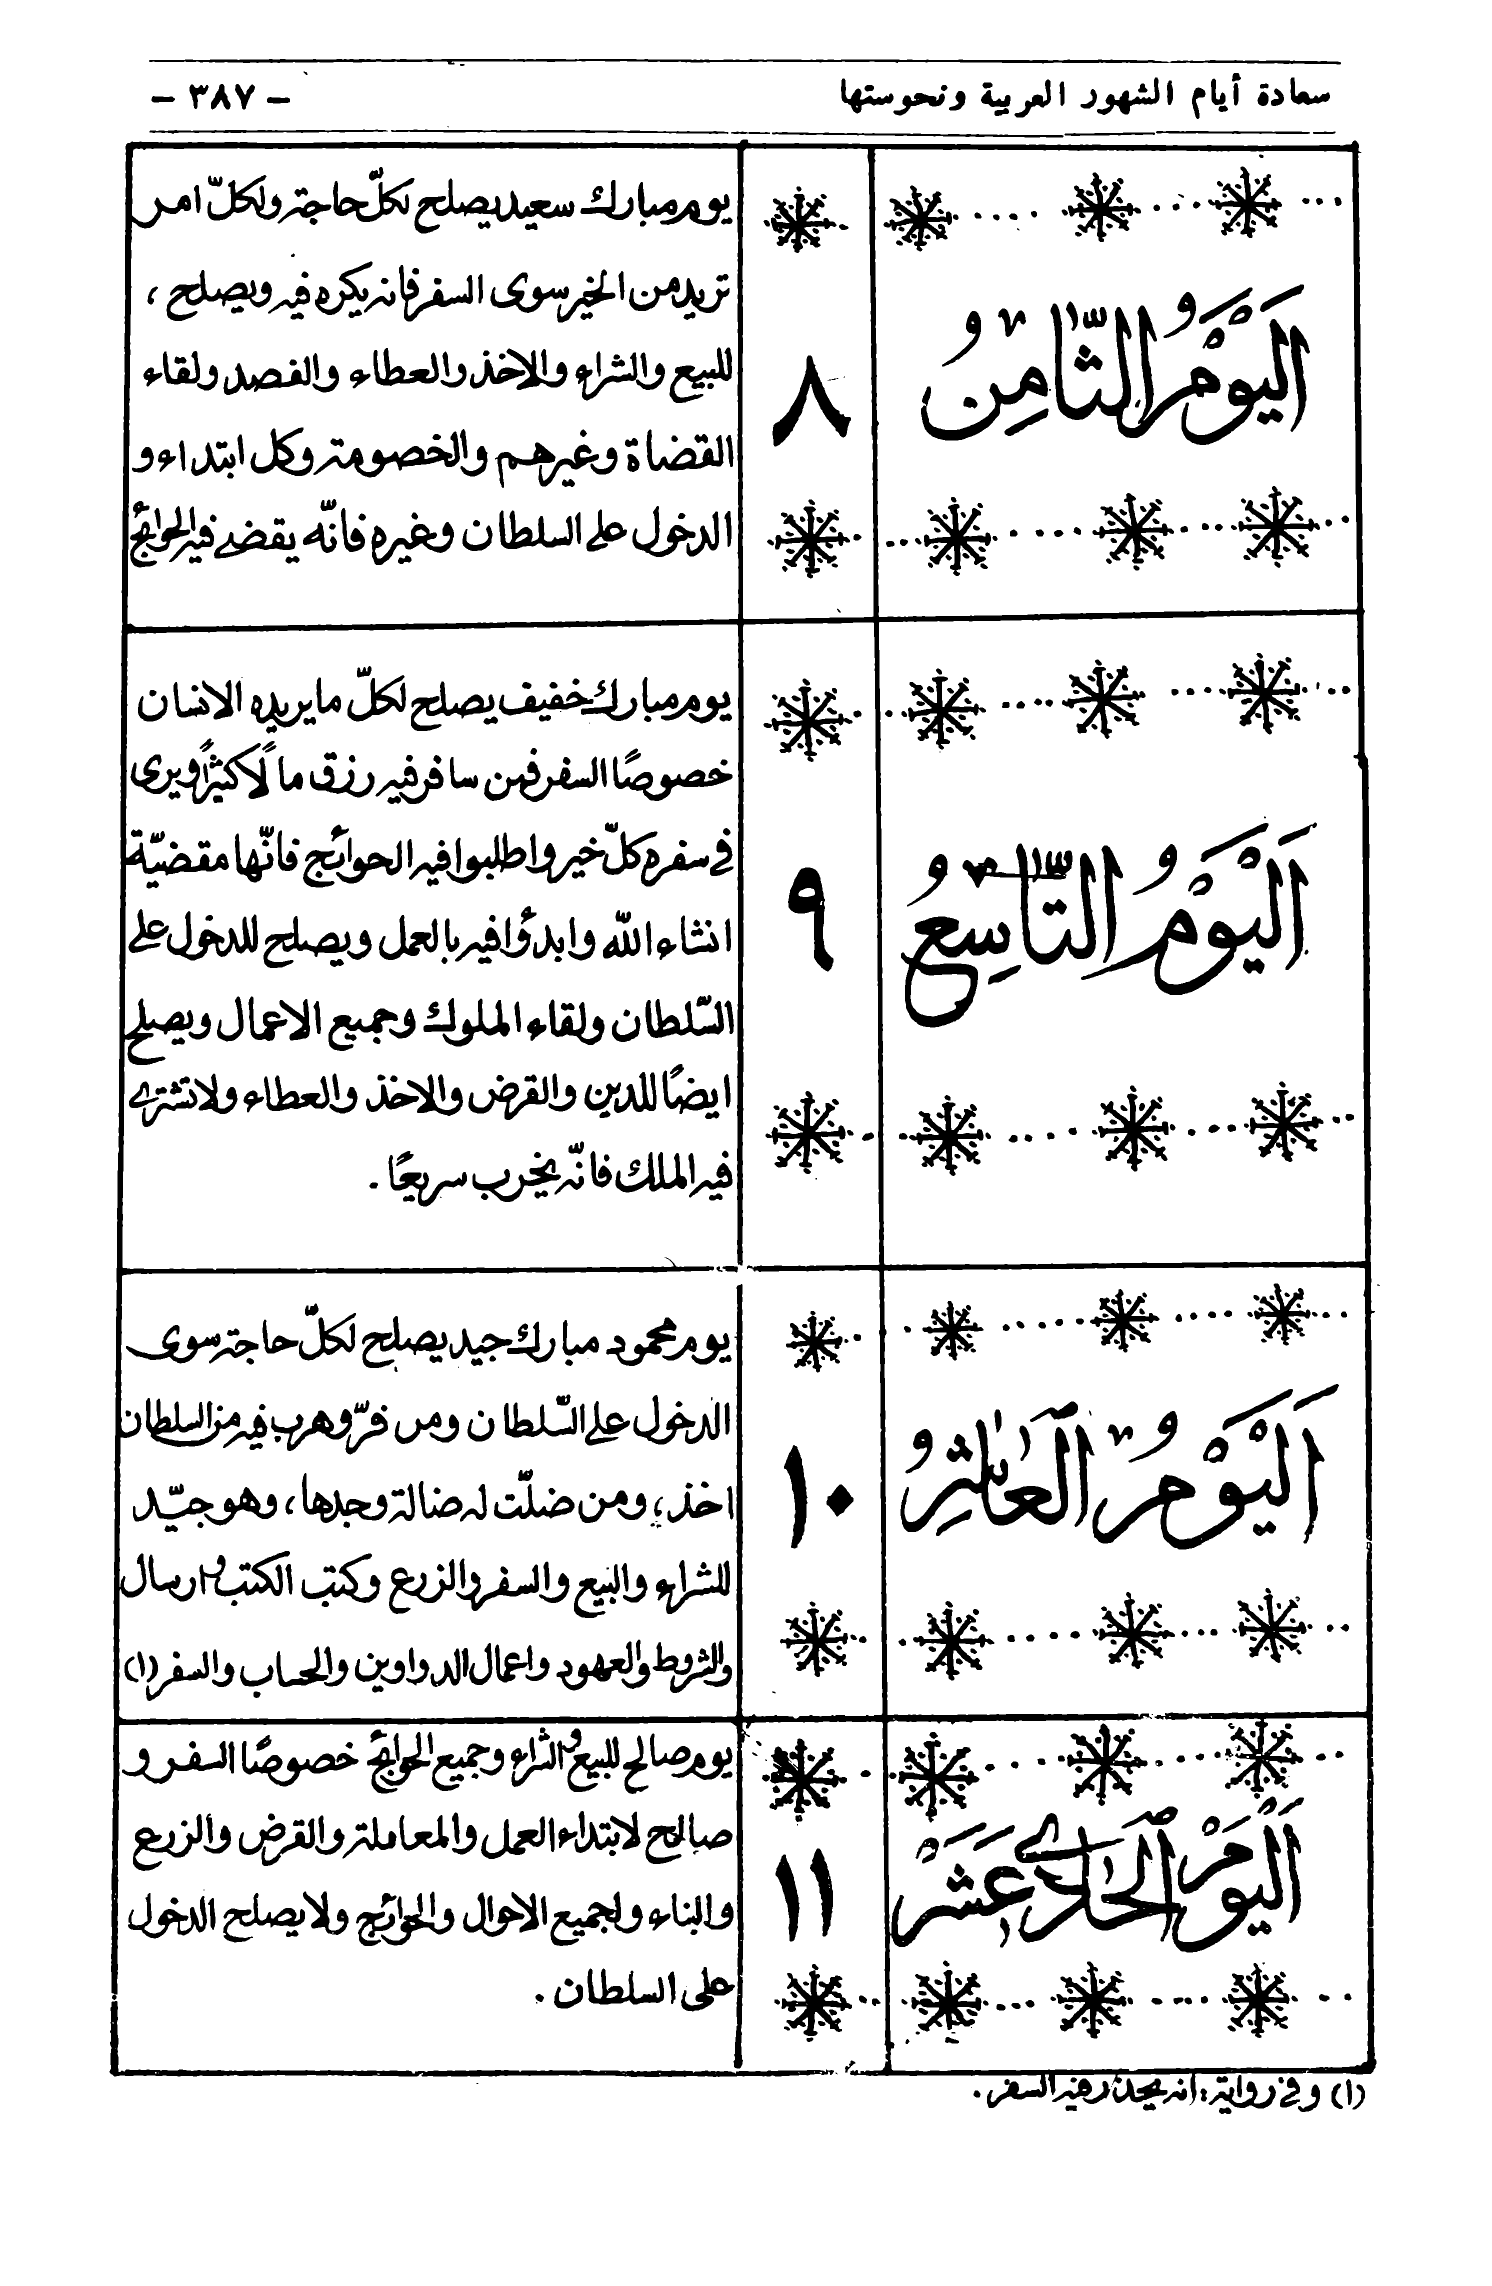 سعادة أيام الشهور العربية ونحوستها
- ٣٨٧ -
اَليَوْمُ الثَّامِنُ
٨
يوم مبارك سعيد يصلح لكلّ حاجة ولكلّ امر
تريد من الخير سوى السفر فانه يكره فيه ويصلح ،
للبيع والشراء والاخذ والعطاء والفصد ولقاء
القضاة وغيرهم والخصومة وكل ابتداء و
الدخول على السلطان وغيره فانّه يقضى فيه الحوائج
اَليَوْمُ التَّاسِعُ
٩
يوم مبارك خفيف يصلح لكلّ ما يريده الانسان
خصوصًا السفر فمن سافر فيه رزق مالًا كثيرًا ويرى
في سفره كلّ خير واطلبوا فيه الحوائج فانّها مقضيّة
انشاء الله وابدؤا فيه بالعمل ويصلح للدخول على
السّلطان ولقاء الملوك وجميع الاعمال ويصلح
ايضًا للدين والقرض والاخذ والعطاء ولا تشترى
فيه الملك فانّه يخرب سريعًا .
اَليَوْمُ العَاشِرُ
١٠
يوم محمود مبارك جيد يصلح لكلّ حاجة سوى
الدخول على السّلطان ومن فرّ وهرب فيه من السلطان
اخذ ؛ ومن ضلّت له ضالة وجدها ، وهو جيّد
للشراء والبيع والسفر والزرع وكتب الكتب وارسال
والشروط والعهود واعمال الدواوين والحساب والسفر (١)
اَليومُ الحَادِي عَشَرْ
١١
يوم صالح للبيع والشراء وجميع الحوائج خصوصًا السفر و
صالح لابتداء العمل والمعاملة والقرض والزرع
والبناء ولجميع الاحوال والحوائج ولا يصلح الدخول
على السلطان .
(١) وفي رواية : انه يحذر فيه السفر .